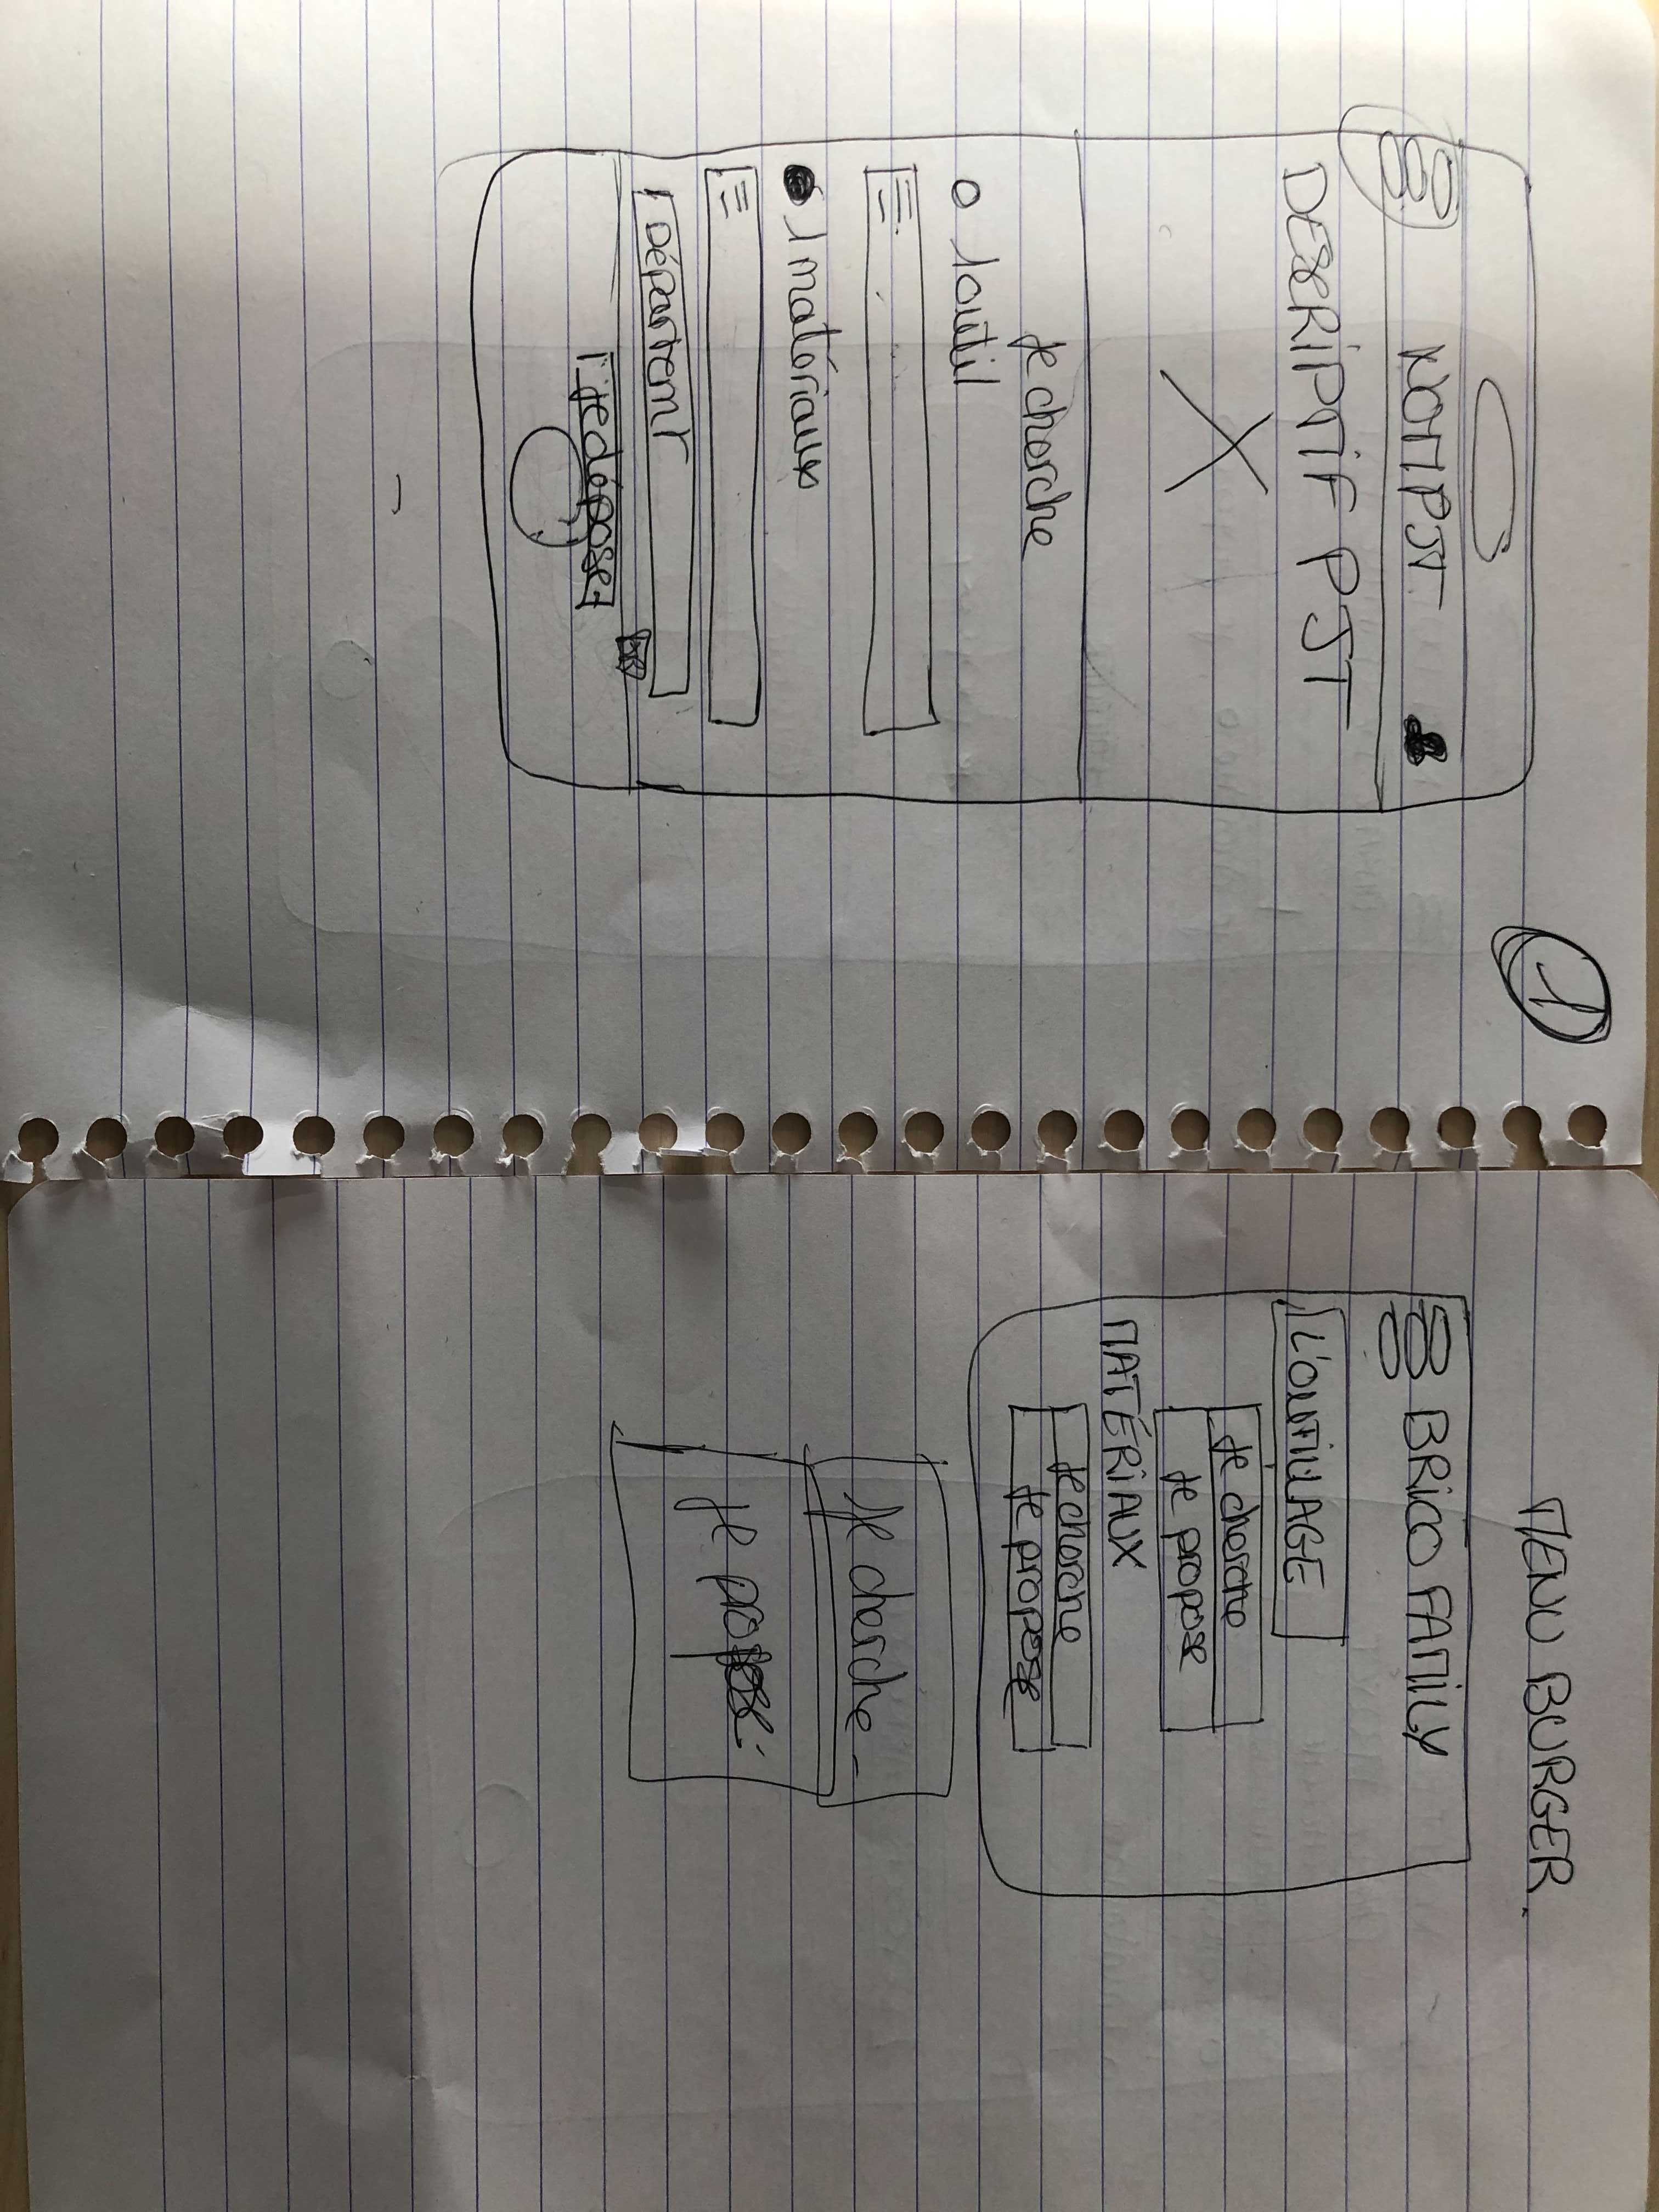 1
NOM PJT
DESCRIPTIF PJT
Je cherche
1 outil
1 matériaux
Département
je dépose
MENU BURGER.
BRICO FAMILY
L'OUTILLAGE
Je cherche
Je propose
MATÉRIAUX
Je cherche
Je propose
Je cherche
Je propose